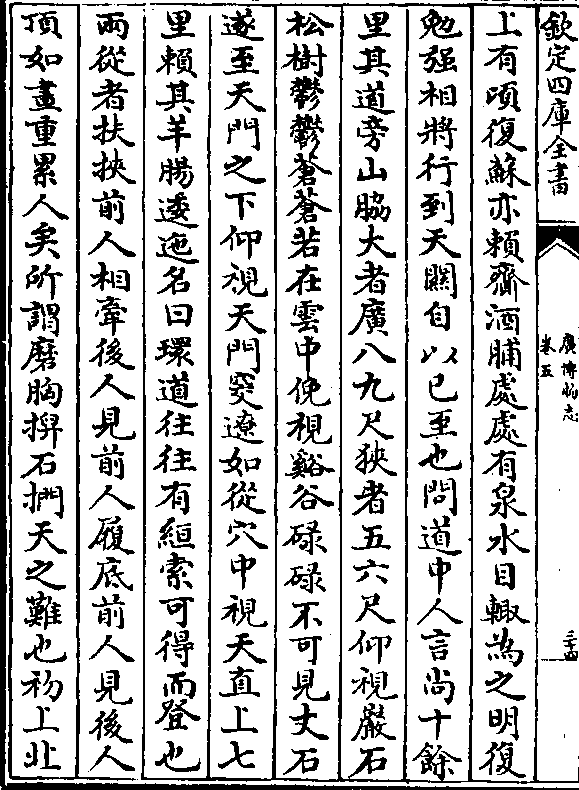 欽定四庫全書
廣博物志
卷五
三十四
上有頃復蘇亦賴齎酒脯處處有泉水目輙為之明復
勉强相將行到天關自以已至也問道中人言尚十餘
里其道旁山脇大者廣八九尺狹者五六尺仰視巖石
松樹鬱鬱蒼蒼若在雲中俛視谿谷碌碌不可見丈石
遂至天門之下仰視天門窔遼如從穴中視天直上七
里賴其羊腸逶迤名曰環道往往有絙索可得而登也
兩從者扶挾前人相牽後人見前人履底前人見後人
頂如畫重累人矣所謂磨胸捭石捫天之難也初上此